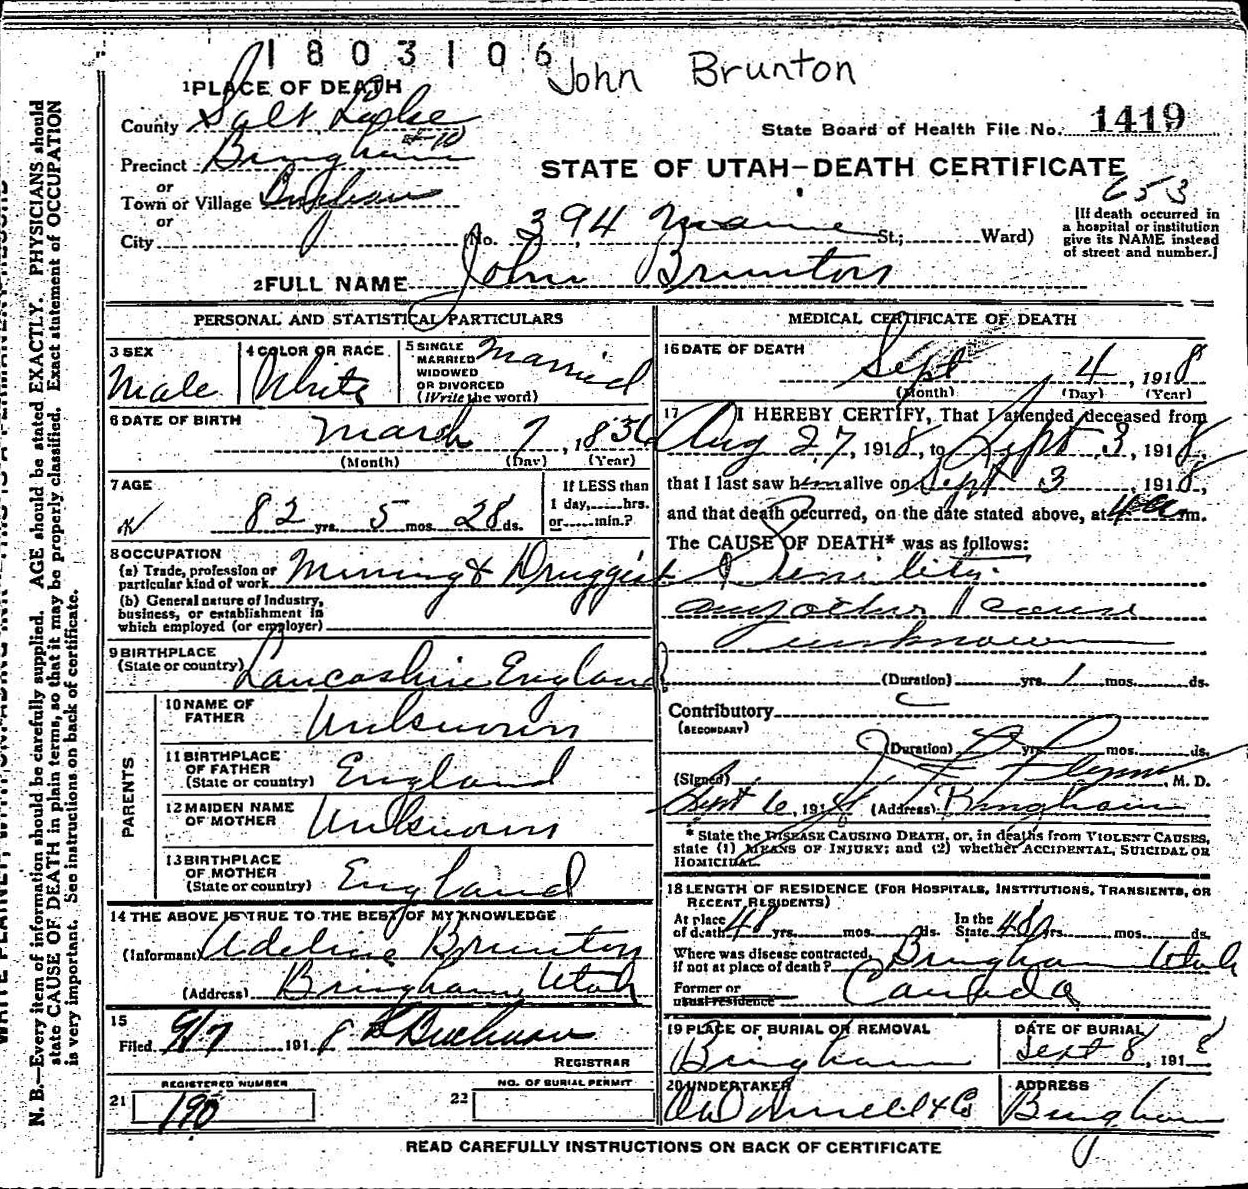 1803106
John Brunton
1 PLACE OF DEATH
County Salt Lake
State Board of Health File No. 1419
Precinct Bingham
STATE OF UTAH—DEATH CERTIFICATE
or
Town or Village Bingham
653
or
City (No. 394 Main St.; Ward)
[If death occurred in
a hospital or institution
give its NAME instead
of street and number.]
2 FULL NAME John Brunton
PERSONAL AND STATISTICAL PARTICULARS
3 SEX Male
4 COLOR OR RACE White
5 SINGLE
MARRIED
WIDOWED
OR DIVORCED
(Write the word) Married
6 DATE OF BIRTH March 7, 1836
(Month) (Day) (Year)
7 AGE
82 yrs. 5 mos. 28 ds.
If LESS than
1 day, hrs.
or min.?
8 OCCUPATION
(a) Trade, profession or
particular kind of work Mining & Druggist
(b) General nature of Industry,
business, or establishment in
which employed (or employer)
9 BIRTHPLACE
(State or country) Lancashire England
PARENTS
10 NAME OF
FATHER Unknown
11 BIRTHPLACE
OF FATHER
(State or country) England
12 MAIDEN NAME
OF MOTHER Unknown
13 BIRTHPLACE
OF MOTHER
(State or country) England
14 THE ABOVE IS TRUE TO THE BEST OF MY KNOWLEDGE
(Informant) Adeline Brunton
(Address) Bingham, Utah
15
Filed 9/7 1918
REGISTRAR
REGISTERED NUMBER
21 190
NO. OF BURIAL PERMIT
22
MEDICAL CERTIFICATE OF DEATH
16 DATE OF DEATH
Sept 4, 1918
(Month) (Day) (Year)
17 I HEREBY CERTIFY, That I attended deceased from
Aug 27, 1918, to Sept 3, 1918,
that I last saw him alive on Sept 3 1918,
and that death occurred, on the date stated above, at 4 a m.
The CAUSE OF DEATH* was as follows:
Senility.
any other cause
unknown
(Duration) yrs. 1 mos. ds.
Contributory
(SECONDARY)
(Duration) yrs. mos. ds.
(Signed) J F Flynn, M. D.
Sept 6, 1918 (Address) Bingham
* State the DISEASE CAUSING DEATH, or, in deaths from VIOLENT CAUSES,
state (1) MEANS OF INJURY; and (2) whether ACCIDENTAL, SUICIDAL OR
HOMICIDAL.
18 LENGTH OF RESIDENCE (FOR HOSPITALS, INSTITUTIONS, TRANSIENTS, OR
RECENT RESIDENTS)
At place
of death 48 yrs. mos. ds. In the
State 48 yrs. mos. ds.
Where was disease contracted,
if not at place of death? Bingham Utah
Former or
usual residence Canada
19 PLACE OF BURIAL OR REMOVAL
Bingham
DATE OF BURIAL
Sept 8, 1918
20 UNDERTAKER
O'Donnell & Co
ADDRESS
Bingham
READ CAREFULLY INSTRUCTIONS ON BACK OF CERTIFICATE
N. B.—Every item of information should be carefully supplied. AGE should be stated EXACTLY. PHYSICIANS should
state CAUSE OF DEATH in plain terms, so that it may be properly classified. Exact statement of OCCUPATION
is very important. See instructions on back of certificate.